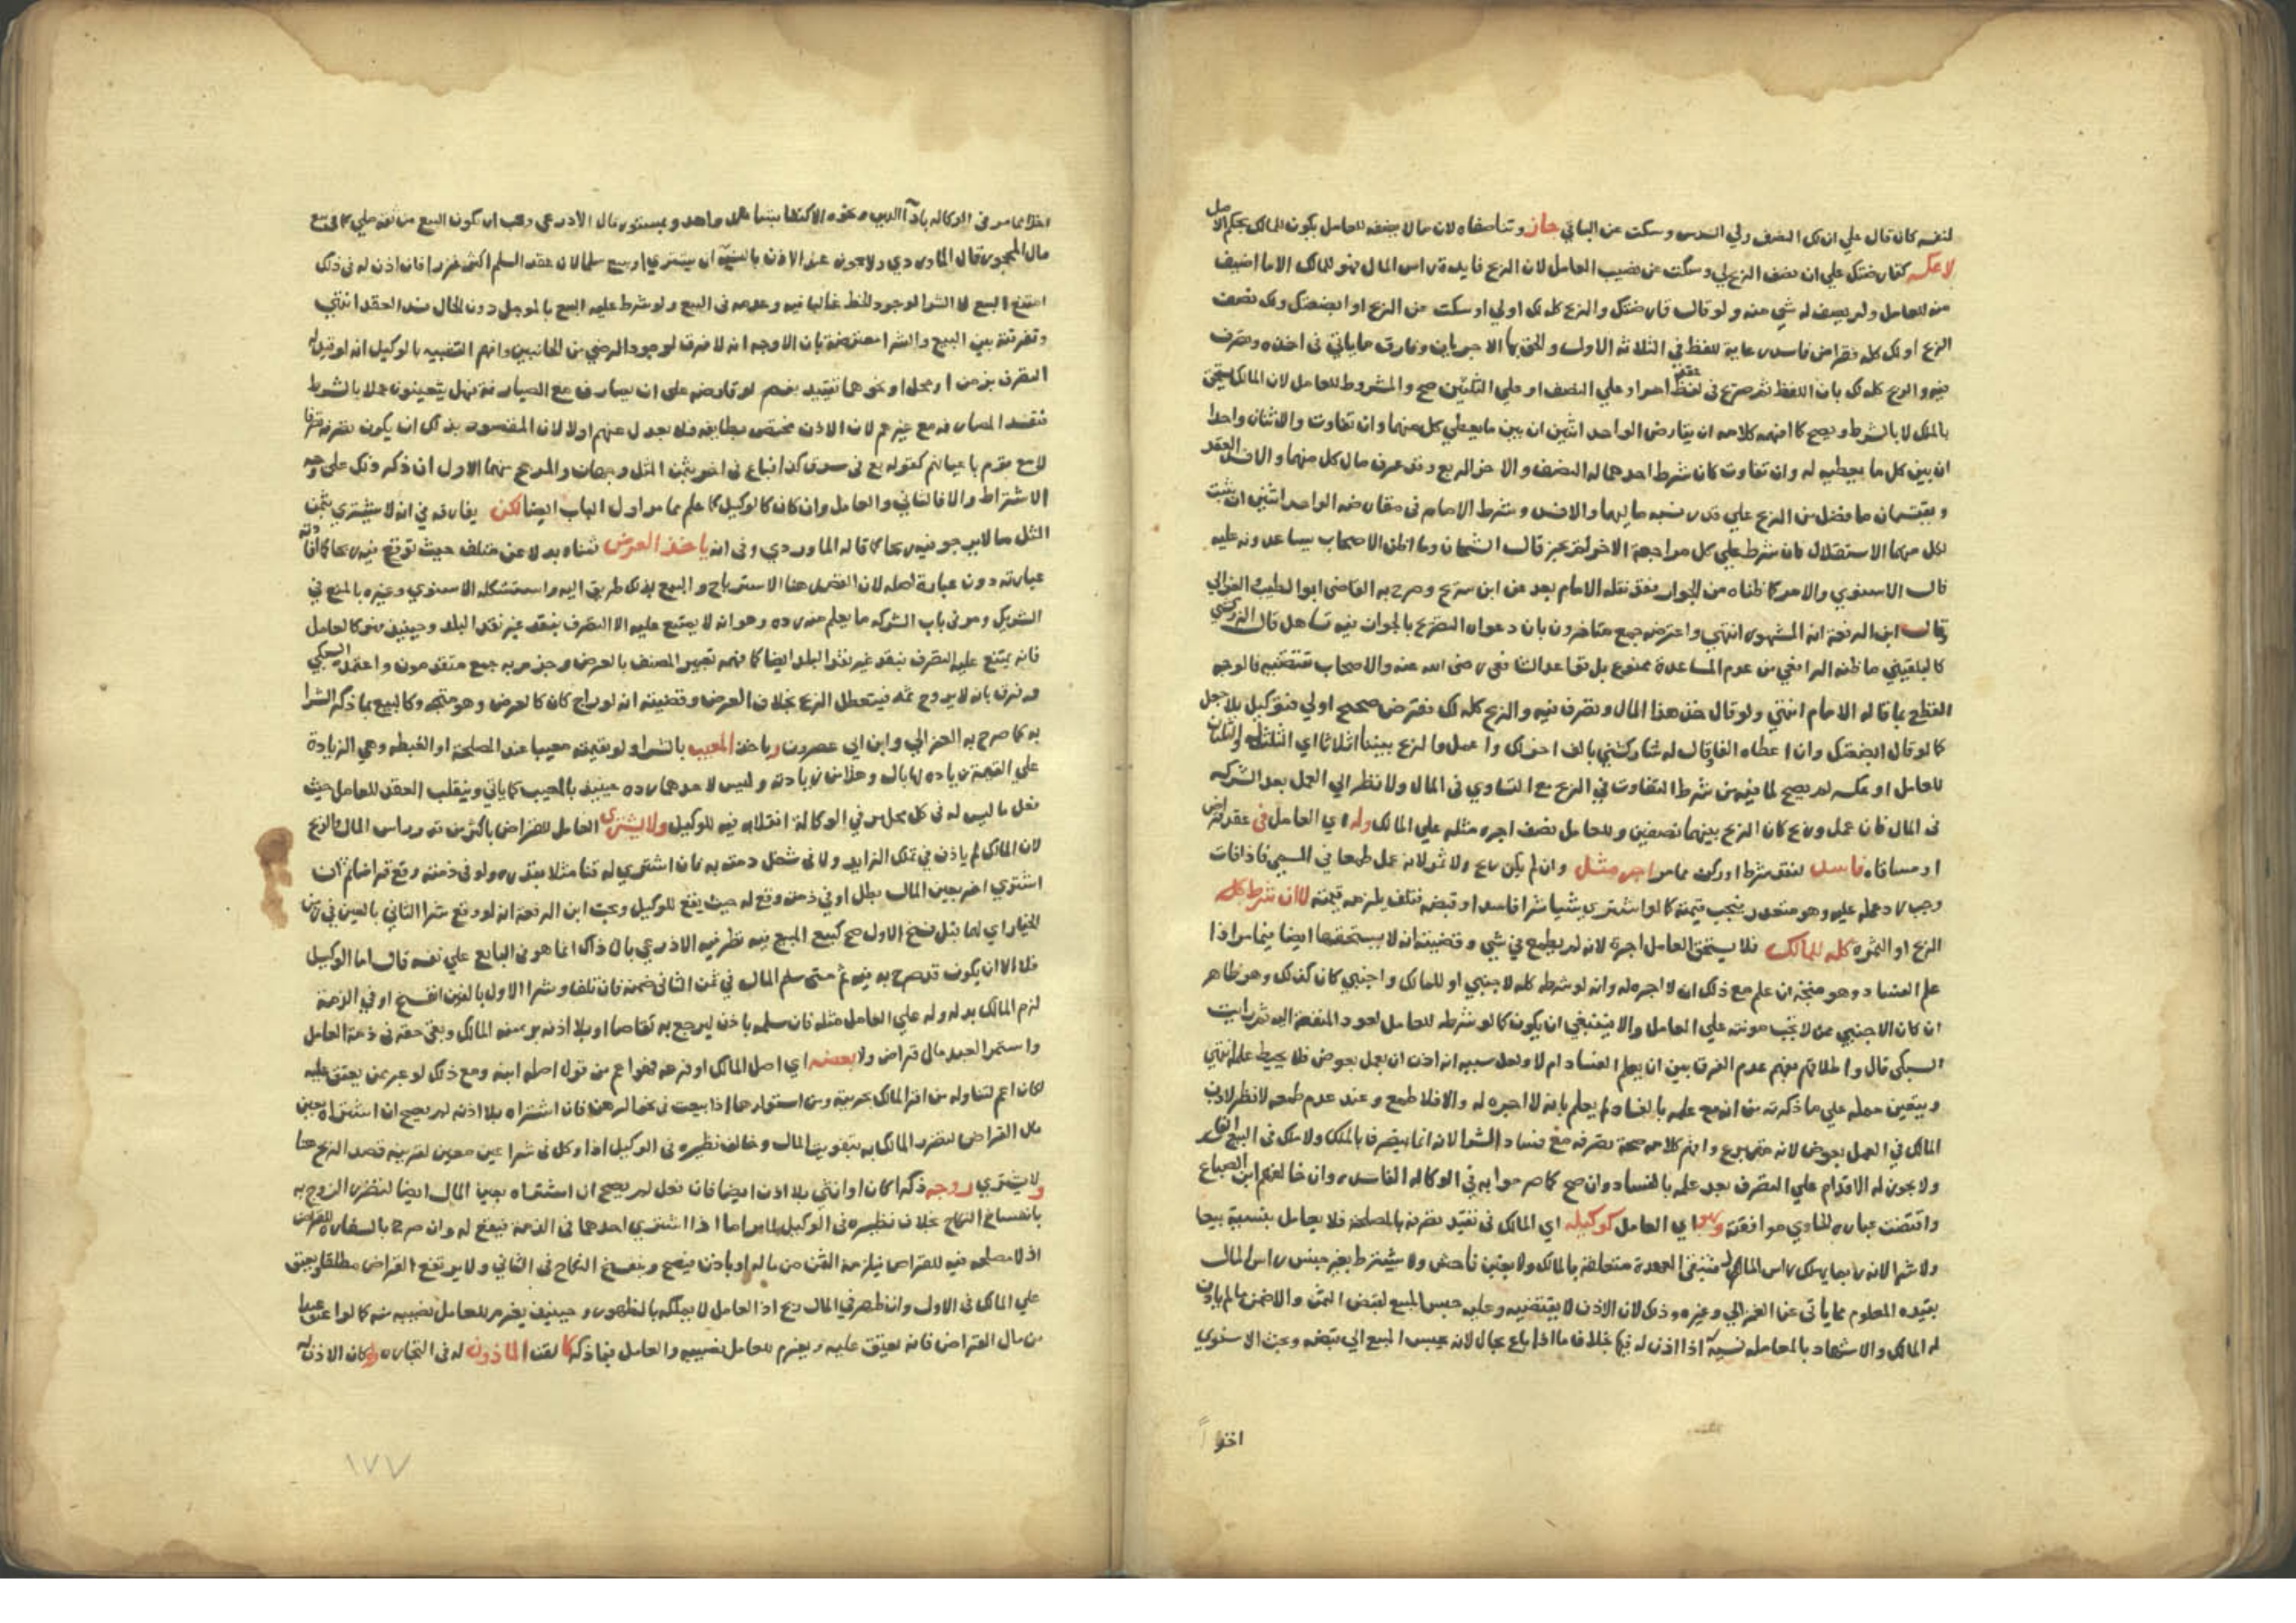 لنفسه كان قال علي ان لك النصف ولي السدس وسكت عن الباقي جاز وتناصفاه لان ما لا يضفه للعامل يكون للمالك بحكم الاصل
لا عكسه كقارضتك علي ان نصف الربح لي وسكت عن نصيب العامل لان الربح فايدة راس المال فهو للمالك الا ما اضيف
منه للعامل ولم يضف له شي منه ولو قال قارضتك والربح كله لك او لي او سكت عن الربح او ابضعتك ولك نصف
الربح او لك كله فقراض فاسد رعاية للفظ في الثلاثة الاول والحق بها الاخريان وفارق ما ياتي في اخذه وتصرف
فيه والربح كله لك بان اللفظ ثم صريح في عقد اخر او علي النصف او علي الثلثين صح والمشروط للعامل لان المالك يستحق
بالملك لا بالشرط ويصح كما افهمه كلامه ان يقارض الواحد اثنين ان بين ما يعطي كل منهما وان تفاوت والاثنان واحدا
ان بين كل ما يعطيه له وان تفاوت كان شرط احدهما له النصف والاخر الربع وقد عرف مال كل منهما والا فسد العقد
ويقتسمان ما فضل من الربح علي قدر نسبة ماليهما والا فسد وشرط الامام في مقارضة الواحد اثنين ان يثبت
لكل منهما الاستقلال فان شرط علي كل مراجعة الاخر لم يجز قال الشيخان وما اظن الاصحاب يساعدونه عليه
قال الاسنوي والامر كما ظناه من الجواز فقد نقله الامام بعد عن ابن سريج وصرح به القاضي ابو الطيب والغزالي
وقال ابن الرفعة انه المشهور انتهي واعترضه جمع متاخرون بان دعواه التصريح بالجواز فيه تساهل قال الزركشي
كالبلقيني ما ظنه الرافعي من عدم المساعدة ممنوع بل قواعد الشافعي رضي الله عنه والاصحاب تقتضيه فالوجه
القطع بما قاله الامام انتهي ولو قال خذ هذا المال وتصرف فيه والربح كله لك فقرض صحيح او لي فتوكيل بلا جعل
كما لو قال ابضعتك وان اعطاه الفا وقال له شاركني بالف اخر لك واعمل والربح بيننا اثلاثا اي الثلث له والثلثان
للعامل او عكسه لم يصح لما فيه من شرط التفاوت في الربح مع التساوي في المال ولا نظر الي العمل بعد الشركة
في المال فان عمل وربح كان الربح بينهما نصفين وللعامل نصف اجرة مثله علي المالك وله اي العامل في عقد قراض
او مساقاه فاسد لفقد شرط او ركن مما مر اجر مثل وان لم يكن ربح ولا ثمر لانه عمل طمعا في المسمي فاذا فات
وجب رد عمله عليه وهو متعذر فتجب قيمته كما لو اشتري شيا شرا فاسدا وقبضه فتلف يلزمه قيمته لا ان شرط كل
الربح او الثمرة كله للمالك فلا يستحق العامل اجرة لانه لم يطمع في شي وقضيته انه لا يستحقها ايضا فيما مر اذا
علم الفساد وهو متجه ان علم مع ذلك ان لا اجره له وانه لو شرطه كله لاجنبي او للمالك واجنبي كان كذلك وهو ظاهر
ان كان الاجنبي ممن لا تجب مونته علي العامل والا فينبغي ان يكون كما لو شرطه للعامل لعود المنفعة اليه ثم رايت
السبكي قال واطلاقهم يفهم عدم الفرق بين ان يعلم الفساد ام لا ولعل سببه انه اذن ان يعمل بعوض فلا يحبط عمله انتهي
ويتعين حمله علي ما ذكرته من انه مع علمه بالفساد لم يعلم بانه لا اجره له والا فلا طمع وعند عدم طمعه لا نظر لاذن
المالك في العمل بعوض لانه متبرع وافهم كلامه صحة تصرفه مع فساد الشرا لانه انما يتصرف بالملك ولا ملك في البيع الفاسد
ولا يجوز له الاقدام علي التصرف بعد علمه بالفساد وان صح كما صرحوا به في الوكالة الفاسده وان خالفهم ابن الصباغ
واقتضت عباره الحاوي موافقته وهو اي العامل كوكيله اي المالك في تقيد تصرفه بالمصلحة فلا يعامل بنسية بيعا
ولا شرا لانه ربما يهلك راس المال فتبقي العهدة متعلقة بالمالك ولا بغبن فاحش ولا يشترط بغير جنس راس المال
بقيده المعلوم مما ياتي عن الغزالي وغيره وذلك لان الاذن لا يقتضيه وعليه حبس المبيع لقبض الثمن والا ضمن ما لم ياذن
له المالك والاشهاد بالمعاملة نسية اذا اذن له فيها بخلاف ما اذا باع بحال لانه يحبس المبيع الي قبضه وبحث الاسنوي
اخذا
اخذا مما مر في الوكالة باداء الدين ونحوه الاكتفا بشاهد واحد وبمستور قال الاذرعي ويجب ان يكون البيع من ثقه ملي كما في بيع
مال المحجور قال الماوردي ولا يجوز عند الاذن بالنسية ان يشتري او يبيع سلما لان عقد السلم اكثر غررا فان اذن له في ذلك
امتنع البيع لا الشرا لوجود الحظ غالبا فيه وعدمه في البيع ولو شرط عليه البيع بالموجل دون الحال فسد العقد انتهي
وتفرقته بين البيع والشرا معترضة بان الاوجه انه لا فرق لوجود الرضي من الجانبين وافهم التشبيه بالوكيل انه لو قيد له
التصرف بزمن او محل او نحوهما تقيد نعم لو قارضه علي ان يصارف مع الصيارفة فهل يتعينون عملا بالشرط
فتفسد المصارفه مع غيرهم لان الاذن مختص بطايفه فلا يعدل عنهم او لا لان المقصود بذلك ان يكون تصرفه صرفا
لا مع قوم باعيانهم كقوله بع في سوق كذا فباع في اخر بثمن المثل وجهان والمرجح منهما الاول ان ذكر ذلك علي وجه
الاشتراط والا فالثاني والعامل وان كان كالوكيل كما علم مما مر اول الباب ايضا لكن يفارقه في انه لا يشتري بثمن
المثل ما لا يرجو فيه ربحا كما قاله الماوردي وفي انه ياخذ العرض شراه بدلا عن متلف حيث توقع فيه ربحا كما افادته
عبارته دون عبارة اصله لان الغرض هنا الاسترباح والبيع بذلك طريق اليه واستشكله الاسنوي وغيره بالمنع في
الشريك ومر في باب الشركه ما يعلم منه رده وهو انه لا يمتنع عليه الا التصرف بنقد غير نقد البلد وحينيذ فهو كالعامل
فانه يمتنع عليه التصرف بنقد غير نقد البلد ايضا كما فهمه تعبير المصنف بالعرض وجزم به جمع متقدمون واعتمده السبكي
وفرق بانه لا يروج ثم فيتعطل الربح بخلاف العرض وقضيته انه لو راج كان كالعرض وهو متجه وكالبيع بما ذكر الشرا
به كما صرح به الغزالي وابن ابي عصرون وياخذ المعيب بالشرا ولو بقيمته معيبا عند المصلحة او الغبطه وهي الزيادة
علي القيمة زياده لها بال وحلاص زيادته وليس لاحدهما رده حينيذ بالعيب كما ياتي وينقلب العقد للعامل حيث
فعل ما ليس له في كل محل مر في الوكالة انقلابه فيه للوكيل ولا يشتري العامل للقراض باكثر من قدر راس المال والربح
لان المالك لم ياذن في تملك الزايد ولا في شغل ذمته به فان اشتري له قنا مثلا بقدره ولو في ذمته وقع قراضا ثم ان
اشتري اخر بعين المال بطل او في ذمته وقع له حيث يقع للوكيل وبحث ابن الرفعة انه لو وقع شرا الثاني بالعين في زمن
الخيار اي لهما قبل فسخ الاول صح كبيع المبيع فيه نظر فيه الاذرعي بان ذاك انما هو في البايع علي نفسه قال اما الوكيل
فلا الا ان يكون قد صرح به فيه ثم متي سلم المال في ثمن الثاني ضمنه فان تلف وشرا الاول بالعين انفسخ او في الذمة
لزم المالك بدله وله علي العامل مثله فان سلمه باذن ليرجع به تقاصا او بلا اذنه بري منه المالك وبقي حقه في ذمة العامل
واستمر العبد مال قراض ولا بعضه اي اصل المالك او فرعه فهو اعم من قول اصله ابنه ومع ذلك لو عبر بمن يعتق عليه
لكان اعم لتناوله من اقر المالك بحريته ومن استولدها اذا بيعت في نحو الرهن فان اشتراه بلا اذنه لم يصح ان اشتراه بعين
مال القراض لتضرر المالك به بتفويت المال وخالف نظيره في الوكيل اذا وكل في شرا عين معين لقرينة قصد الربح هنا
ولا يشتري زوجه ذكرا كان او انثي بلا اذن ايضا فان فعل لم يصح ان اشتراه بعين المال ايضا لتضرر الزوج به
بانفساخ النكاح بخلاف نظيره في الوكيل لما مر اما اذا اشتري احدهما في الذمة فيقع له وان صرح بالسفارة للقراض
اذ لا مصلحه فيه للقراض فيلزمه الثمن من ماله او باذن فيصح وينفسخ النكاح في الثاني ولا يرتفع القراض مطلقا ويعتق
علي المالك في الاول وان ظهر في المال ربح اذ العامل لا يملكه بالظهور وحينيذ يغرم للعامل نصيبه منه كما لو اعتق عبدا
من مال القراض فانه يعتق عليه ويغرم للعامل نصيبه والعامل فيما ذكر كالقن الماذون له في التجاره ولو كان الاذن له
١٧٧